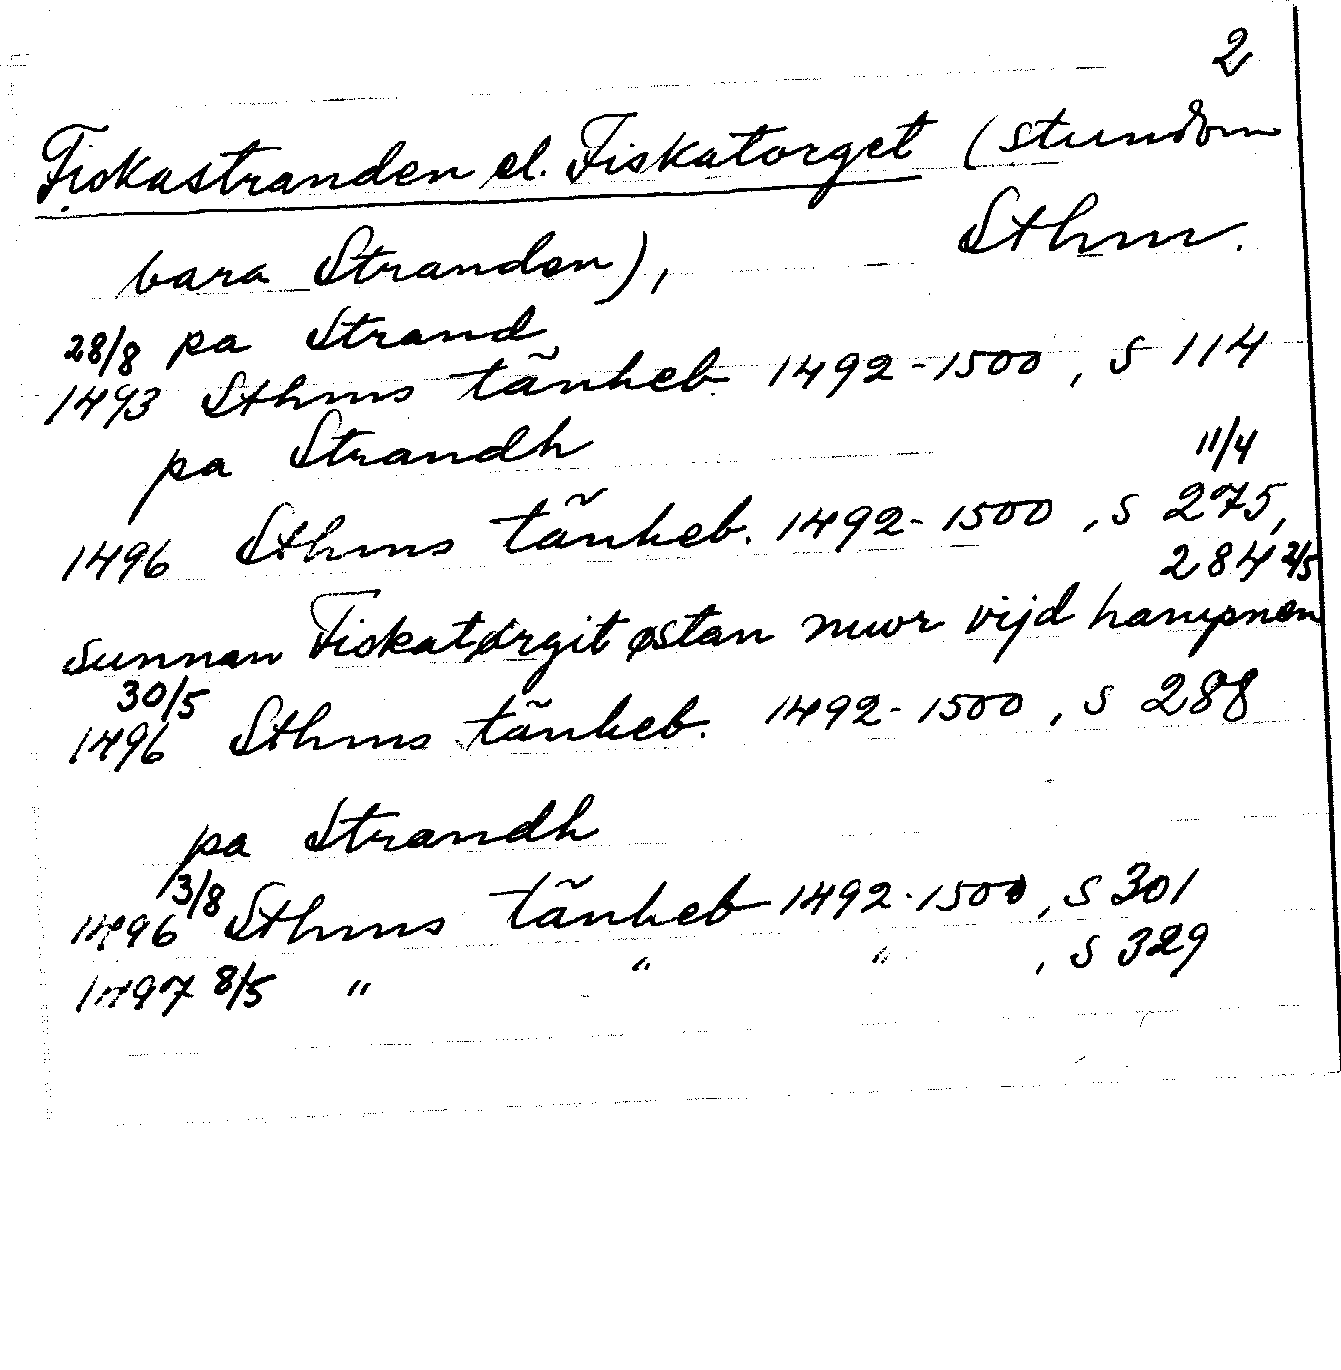 2
Fiskastranden el. Fiskatorget (stundom
bara Stranden), Sthm.
28/8 pa Strand
1493 Sthms tänkeb. 1492-1500, s 114
pa Strandh 11/4
1496 Sthms tänkeb. 1492-1500, s 275,
284 2/5
sunnan Fiskatørgit østan mwr vijd hampnen
30/5
1496 Sthms tänkeb. 1492-1500, s 288
pa Strandh
3/8
1496 Sthms tänkeb 1492-1500, s 301
1497 8/5 " " " , s 329